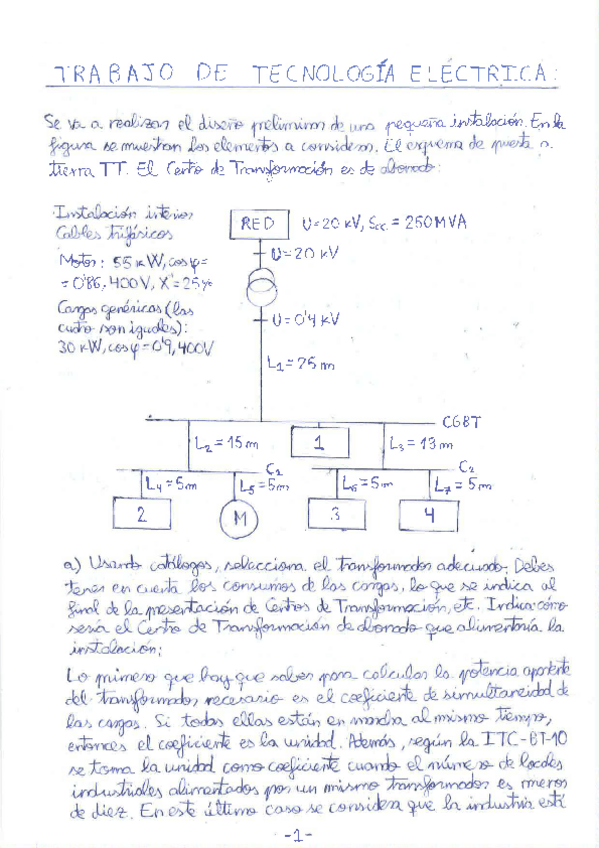 TRABAJO DE TECNOLOGÍA ELÉCTRICA:
Se va a realizar el diseño preliminar de una pequeña instalación. En la
figura se muestran los elementos a considerar. El esquema de puesta a
tierra TT. El Centro de Transformación es de abonado:
Instalación interior
Cables trifásicos
Motor: 55 kW, cosφ=
=0'86, 400V, X"=25%
Cargas genéricas (las
cuatro son iguales):
30 kW, cosφ=0'9, 400V
RED
U=20 kV, Scc = 250 MVA
U=20 kV
U=0'4 kV
L1=25m
CGBT
L2=15m
1
L3=13m
C2
C2
L4=5m
L5=5m
L6=5m
L7=5m
2
M
3
4
a) Usando catálogos, selecciona el transformador adecuado. Debes
tener en cuenta los consumos de las cargas, lo que se indica al
final de la presentación de Centros de Transformación, etc. Indica cómo
sería el Centro de Transformación de abonado que alimentaría la
instalación:
Lo primero que hay que saber para calcular la potencia aparente
del transformador necesario es el coeficiente de simultaneidad de
las cargas. Si todas ellas están en marcha al mismo tiempo,
entonces el coeficiente es la unidad. Además, según la ITC-BT-10
se toma la unidad como coeficiente cuando el número de locales
industriales alimentados por un mismo transformador es menos
de diez. En este último caso se considera que la industria está
-1-